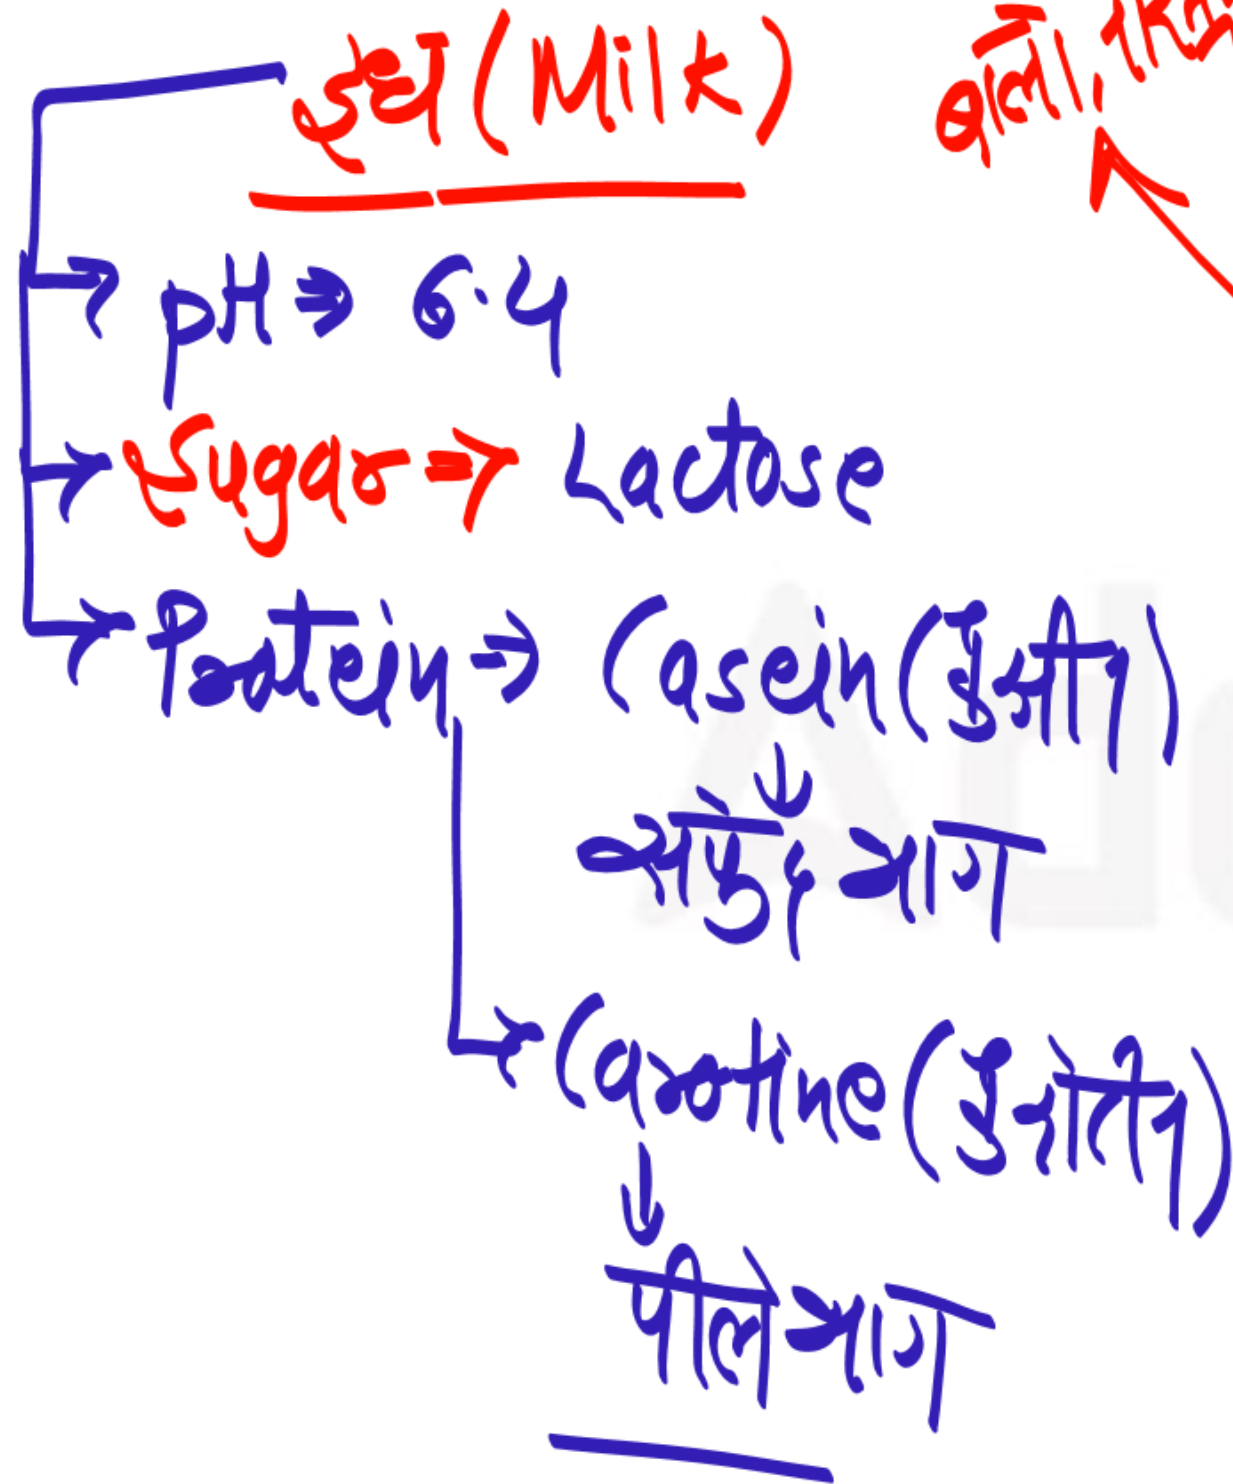 दूध (Milk)
बालों,
pH ⇒ 6.4
Sugar ⇒ Lactose
Protein → Casein (केसीन)
सफेद भाग
Carotine (केरोटीन)
पीले भाग